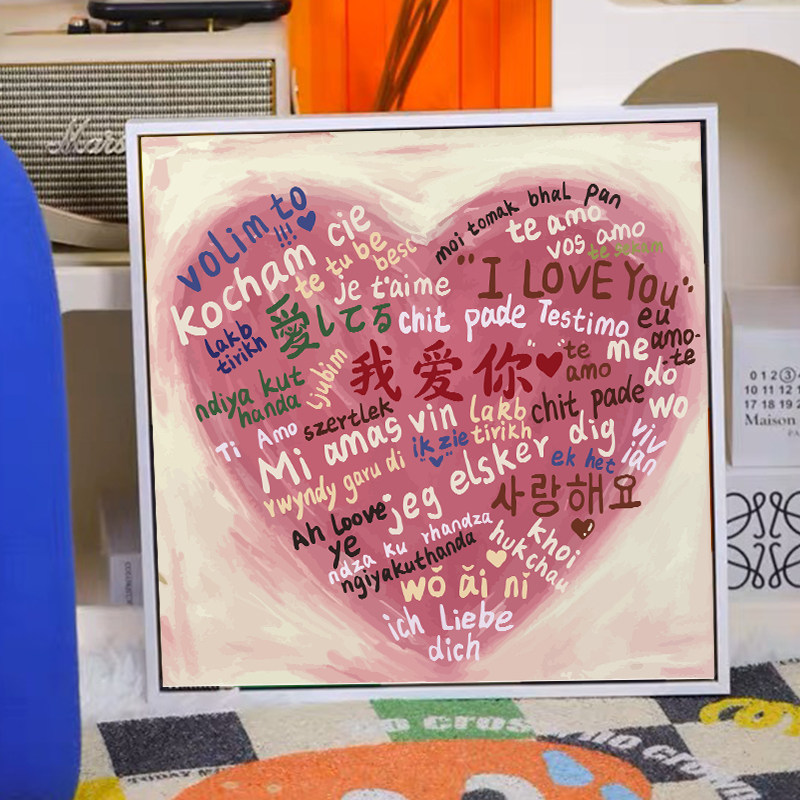 volim to
!!!
kocham cie
te tu be
besc
moi tomak bhal pan
te amo
vos amo
je t'aime
"I LOVE YOU"
lakb
tirikh
愛してる
chit pade
Testimo
eu
amo-
te
ljubim
我爱你
"
te
amo
me
do
wo
ndiya kut
handa
szertlek
chit pade
Ti Amo
Mi amas vin
lakb
tirikh
ik zie
dig
viv
ian
rwyndy garu di
jeg elsker
ek het
사랑해요
Ah loove
ye
ndza ku rhandza
ngiyakuthanda
khoi
huk chau
wǒ ǎi nǐ
ich Liebe
dich
Mars
0 1 2 3
10 11 12
17 18 19 2
Maison
PA
TODAY